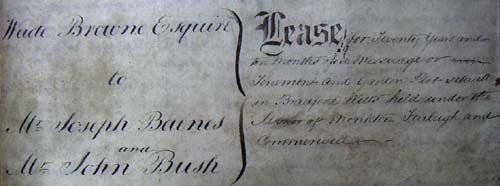 Wade Browne Esquire
to
Mr. Joseph Baines
and
Mr. John Bush
Lease for Seventy Years and
ten months of a Messuage or
Tenement and Garden Plot situate
in Bradford Wilts held under the
Manor of Monkton Farleigh and
Cumerwell